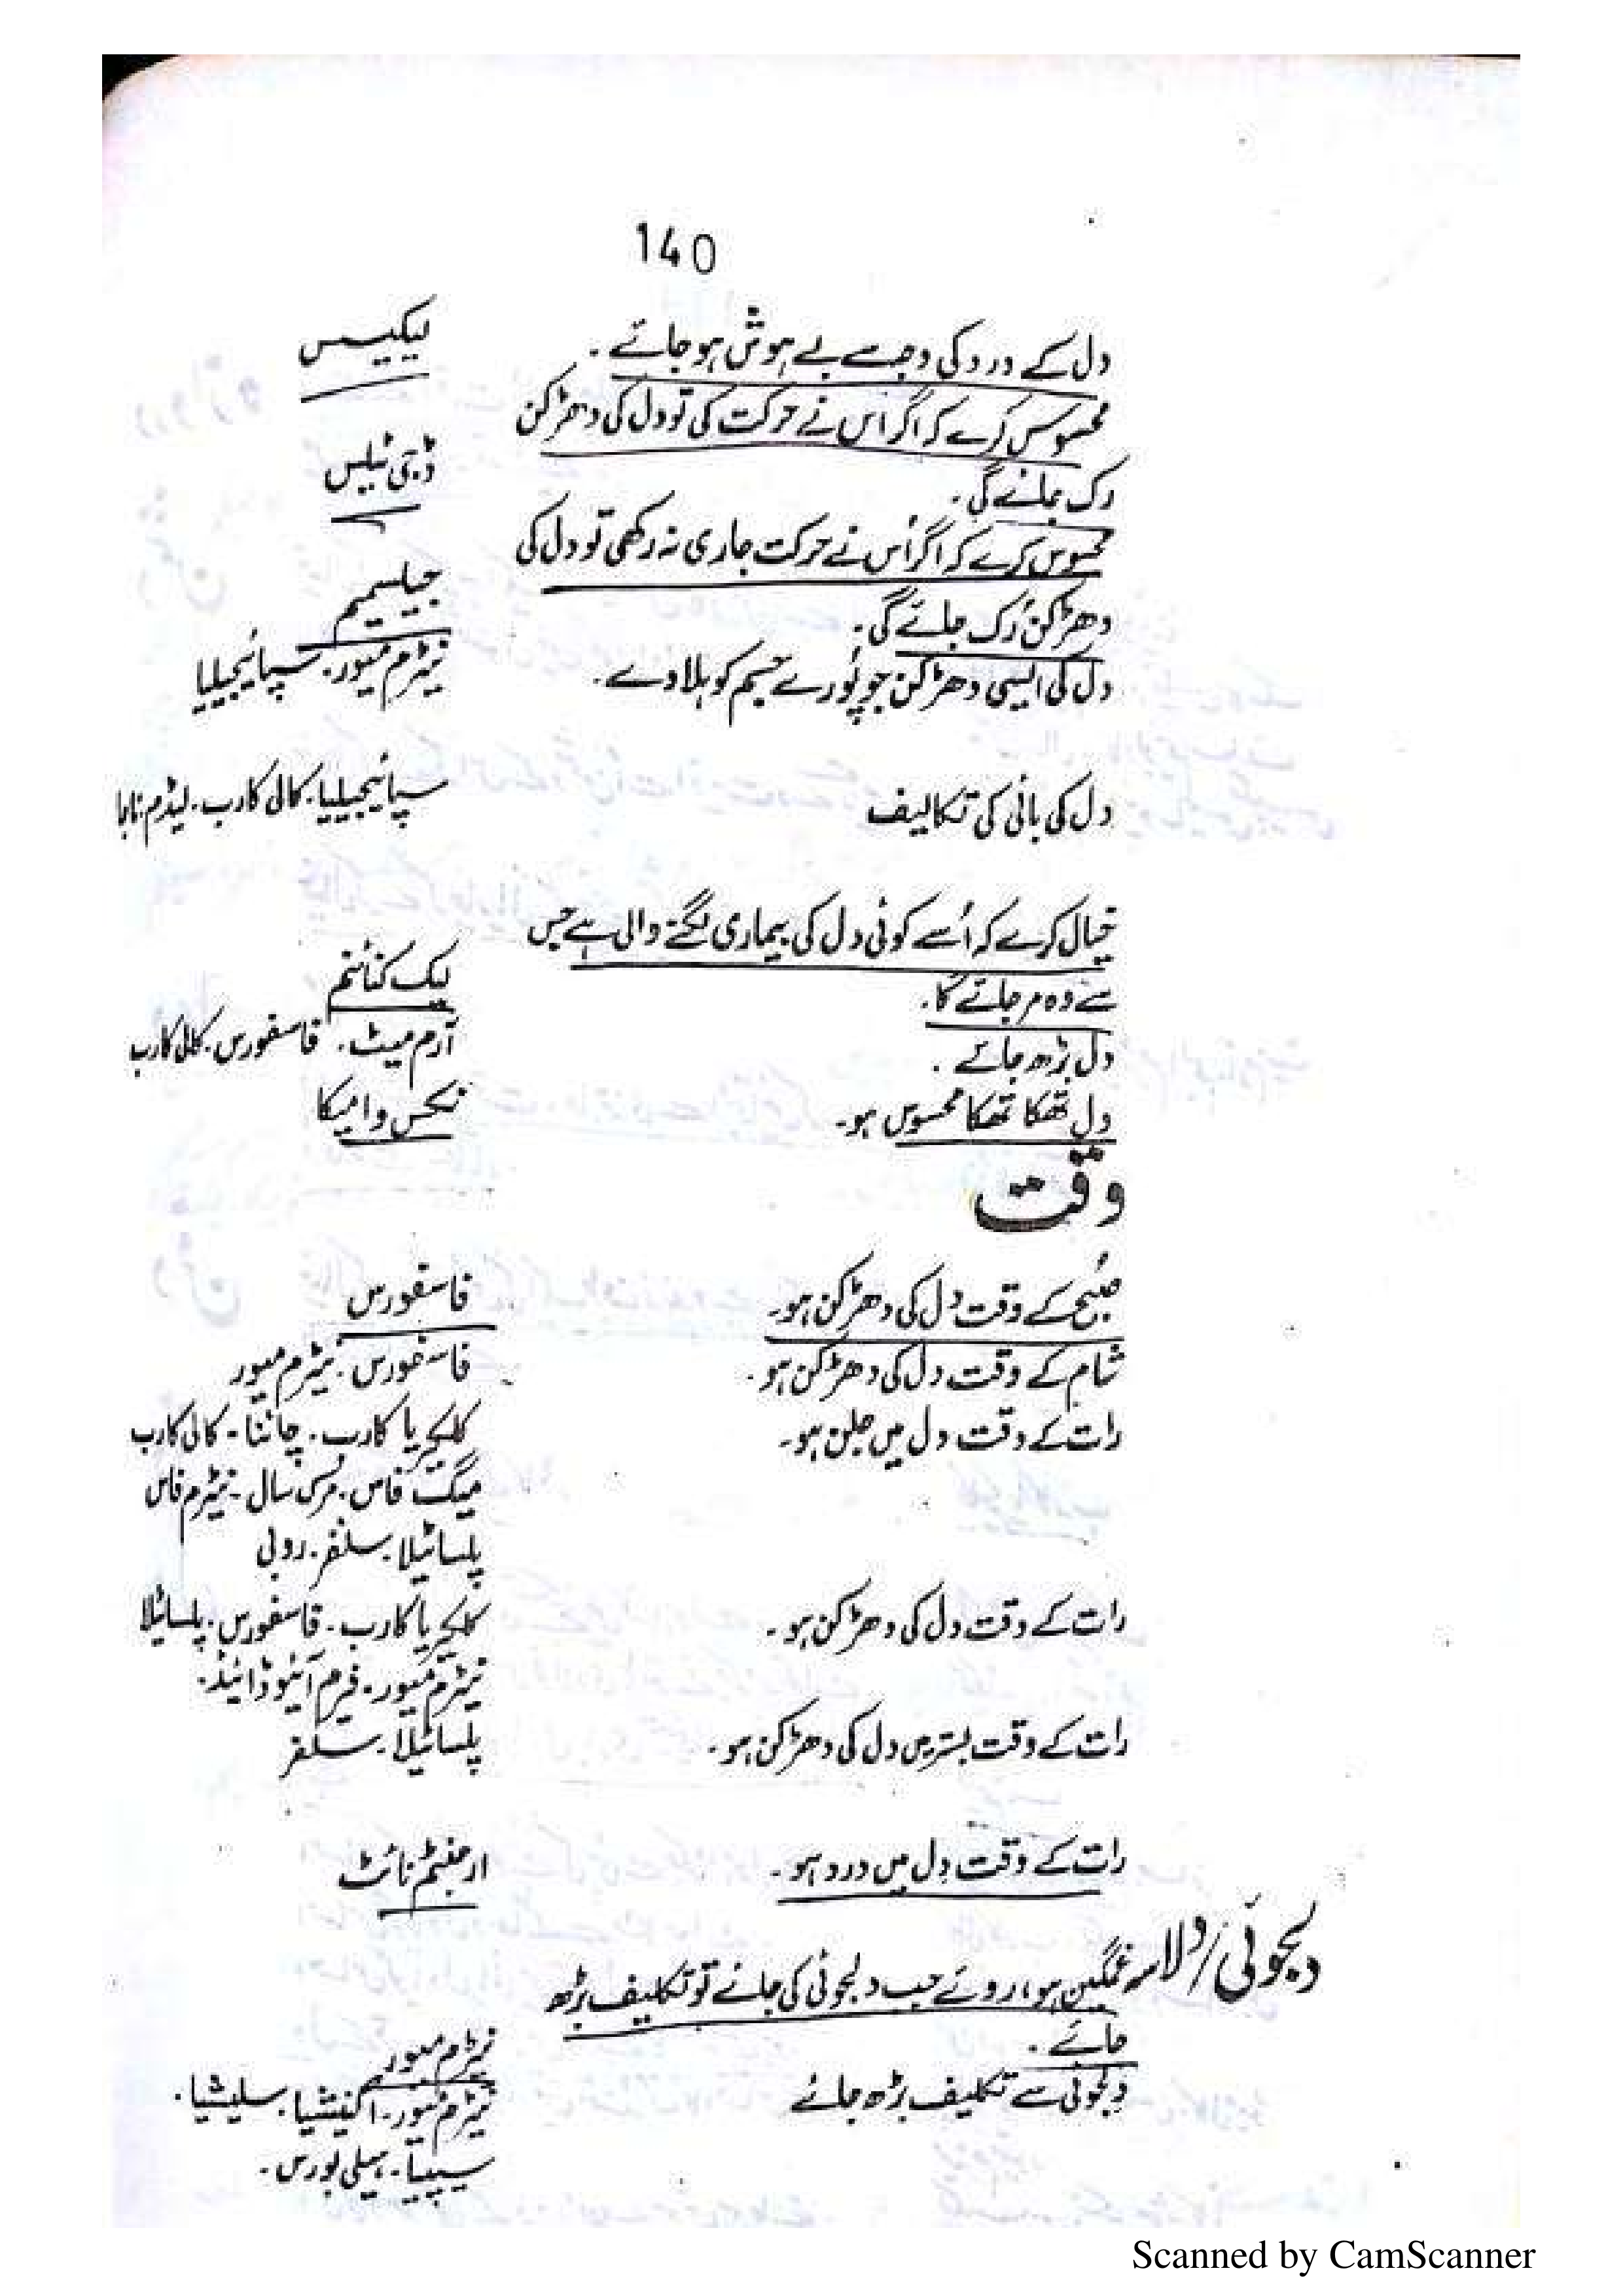 140
دل کے درد کی وجہ سے بے ہوش ہو جائے ۔ لیکیسس
محسوس کرے کہ اگر اس نے حرکت کی تو دل کی دھڑکن
رک جائے گی ۔ ڈجی ٹیلس
محسوس کرے کہ اگر اُس نے حرکت جاری نہ رکھی تو دل کی
دھڑکن رُک جائے گی ۔ جیلسیمیم
دل کی ایسی دھڑکن جو پُورے جسم کو ہلا دے ۔ نیٹرم میور ۔ سپائیجیلیا
دل کی بائی کی تکالیف سپائیجیلیا ۔ کالی کارب ۔ لیڈم ۔ ناجا
خیال کرے کہ اُسے کوئی دل کی بیماری لگنے والی ہے جس
سے وہ مر جائے گا ۔ لیک کنائنم
دل بڑھ جائے ۔ آرم میٹ ۔ فاسفورس ۔ کالی کارب
دل تھکا تھکا محسوس ہو ۔ نکس وامیکا
وقت
صُبح کے وقت دل کی دھڑکن ہو ۔ فاسفورس
شام کے وقت دل کی دھڑکن ہو ۔ فاسفورس ۔ نیٹرم میور
رات کے وقت دل میں جلن ہو ۔ کلکیریا کارب ۔ چائنا ۔ کالی کارب
میگ فاس ۔ مرک سال ۔ نیٹرم فاس
پلساٹیلا ۔ سلفر ۔ روبی
رات کے وقت دل کی دھڑکن ہو ۔ کلکیریا کارب ۔ فاسفورس ۔ پلساٹیلا
نیٹرم میور ۔ فیرم آئیوڈائیڈ ۔
رات کے وقت بستر میں دل کی دھڑکن ہو ۔ پلساٹیلا ۔ سلفر
رات کے وقت دل میں درد ہو ۔ ارجنٹم نائٹ
دلجوئی/دلاسہ غمگین ہو، روئے جب دلجوئی کی جائے تو تکلیف بڑھ
جائے ۔ نیٹرم میور
دلجوئی سے تکلیف بڑھ جائے نیٹرم میور ۔ اگنیشیا ۔ سلیشیا ۔
سیپیا ۔ ہیلی بورس ۔
Scanned by CamScanner